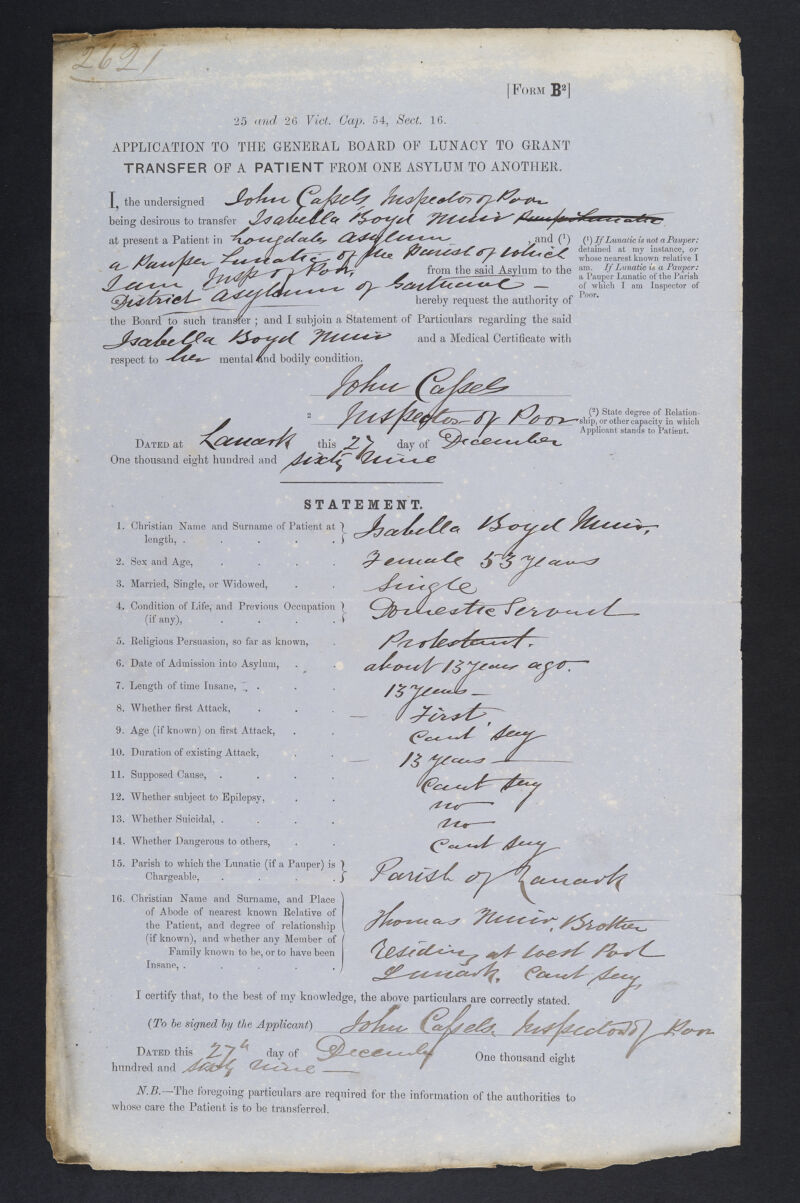 2621
[FORM B²]
25 and 26 Vict. Cap. 54, Sect. 16.
APPLICATION TO THE GENERAL BOARD OF LUNACY TO GRANT
TRANSFER OF A PATIENT FROM ONE ASYLUM TO ANOTHER.
I, the undersigned John Cassels, Inspector of Poor
being desirous to transfer Isabella Boyd Muir Pauper Lunatic
at present a Patient in Longdales Asylum, and (¹)
a Pauper Lunatic of the Parish of which
I am Insp of Poor, from the said Asylum to the
District Asylum of Gartnavel – hereby request the authority of
the Board to such transfer ; and I subjoin a Statement of Particulars regarding the said
Isabella Boyd Muir and a Medical Certificate with
respect to her mental and bodily condition.
(¹) If Lunatic is not a Pauper:
detained at my instance, or
whose nearest known relative I
am. If Lunatic is a Pauper:
a Pauper Lunatic of the Parish
of which I am Inspector of
Poor.
John Cassels
² Inspector of Poor
(²) State degree of Relation-
ship, or other capacity in which
Applicant stands to Patient.
DATED at Lanark this 27 day of December
One thousand eight hundred and sixty nine
STATEMENT.
1. Christian Name and Surname of Patient at length, . . . . . Isabella Boyd Muir.
2. Sex and Age, . . . . Female 53 years
3. Married, Single, or Widowed, . . Single
4. Condition of Life, and Previous Occupation (if any), . . . . . Domestic Servant
5. Religious Persuasion, so far as known, . Protestant.
6. Date of Admission into Asylum, . . about 13 years ago.
7. Length of time Insane, . . . 13 years –
8. Whether first Attack, . . . – First,
9. Age (if known) on first Attack, . . Cant say
10. Duration of existing Attack, . . – 13 years –
11. Supposed Cause, . . . . Cant say
12. Whether subject to Epilepsy, . . no
13. Whether Suicidal, . . . . no
14. Whether Dangerous to others, . . Cant say
15. Parish to which the Lunatic (if a Pauper) is
Chargeable, . . . . . Parish of Lanark
16. Christian Name and Surname, and Place
of Abode of nearest known Relative of
the Patient, and degree of relationship
(if known), and whether any Member of
Family known to be, or to have been
Insane, . . . . .
Thomas Muir, Brother
residing at West Port
Lanark. Cant say,
I certify that, to the best of my knowledge, the above particulars are correctly stated.
(To be signed by the Applicant) John Cassels. Inspector of Poor
DATED this 27th day of December One thousand eight
hundred and sixty nine –
N.B.—The foregoing particulars are required for the information of the authorities to
whose care the Patient is to be transferred.